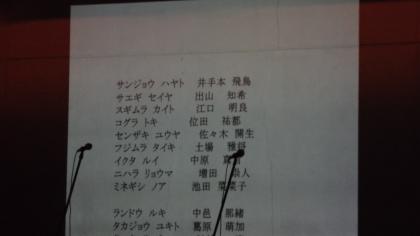 サンジョウ ハヤト 井手本 飛鳥
サエギ セイヤ 出山 知希
スギムラ カイト 江口 明良
コグラ トキ 位田 祐都
センザキ ユウヤ 佐々木 開生
フジムラ タイキ 土場
イクタ ルイ 中原
ニハラ リョウマ 増田
ミネギシ ノア 池田 菜菜子
ランドウ ルキ 中邑 那緒
タカジョウ ユキト 葛原 萌加